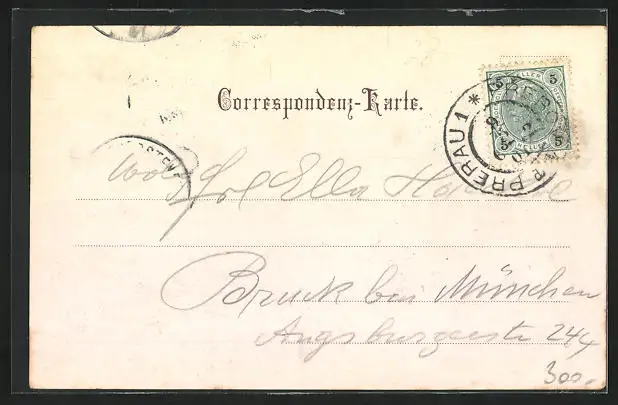 Correspondenz-Karte.
5 HELLER 5
PRERAU 1 *
Wolf Frl Ella
Bruck bei München
Augsburgerstr 244
300.